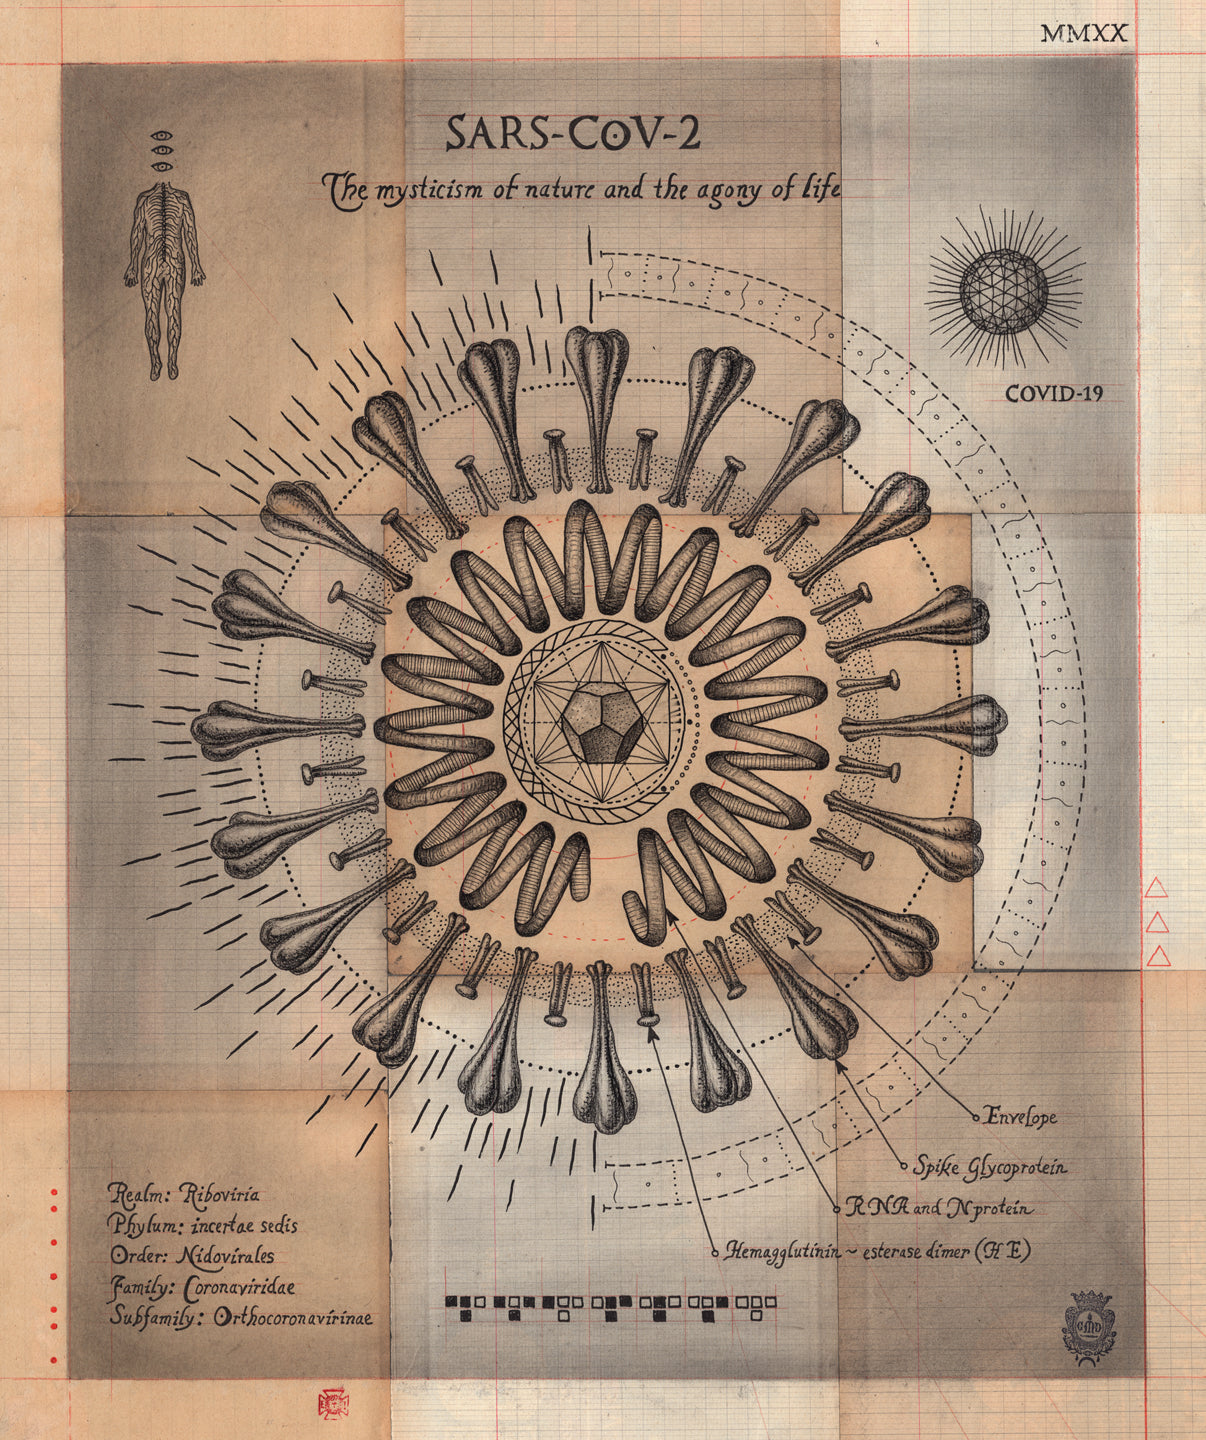 MMXX
SARS-CoV-2
The mysticism of nature and the agony of life
COVID-19
Envelope
Spike Glycoprotein
RNA and N protein
Hemagglutinin ~ esterase dimer (HE)
Realm: Riboviria
Phylum: incertae sedis
Order: Nidovirales
Family: Coronaviridae
Subfamily: Orthocoronavirinae